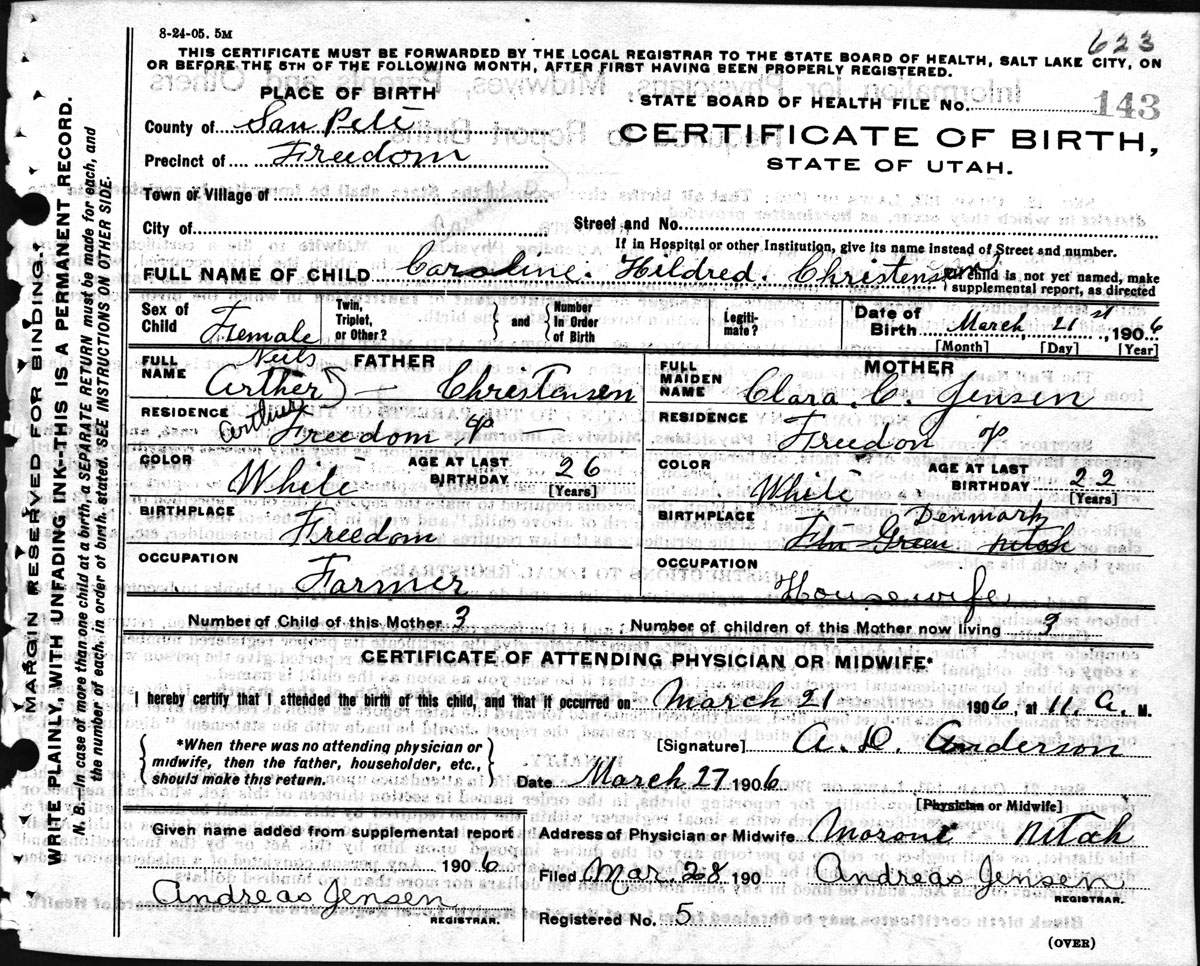 8-24-05. 5M
623
THIS CERTIFICATE MUST BE FORWARDED BY THE LOCAL REGISTRAR TO THE STATE BOARD OF HEALTH, SALT LAKE CITY, ON
OR BEFORE THE 5TH OF THE FOLLOWING MONTH, AFTER FIRST HAVING BEEN PROPERLY REGISTERED.
PLACE OF BIRTH
STATE BOARD OF HEALTH FILE No. 143
County of San Pete
CERTIFICATE OF BIRTH,
Precinct of Freedom
STATE OF UTAH.
Town of Village of
City of
Street and No.
If in Hospital or other Institution, give its name instead of Street and number.
FULL NAME OF CHILD Caroline. Hildred. Christensen
child is not yet named, make
supplemental report, as directed
Sex of Child Female
Twin, Triplet, or Other?
and
Number In Order of Birth
Legiti-mate?
Date of Birth March 21st, 1906
[Month] [Day] [Year]
FATHER
FULL NAME Neils Arther Christensen
Arthur
RESIDENCE Freedom
COLOR White
AGE AT LAST BIRTHDAY 26 [Years]
BIRTHPLACE Freedom
OCCUPATION Farmer
MOTHER
FULL MAIDEN NAME Clara. C. Jensen
RESIDENCE Freedon
COLOR White
AGE AT LAST BIRTHDAY 22 [Years]
BIRTHPLACE Denmark
Green Utah
OCCUPATION Housewife
Number of Child of this Mother 3
Number of children of this Mother now living 3
CERTIFICATE OF ATTENDING PHYSICIAN OR MIDWIFE*
I hereby certify that I attended the birth of this child, and that it occurred on March 21 1906, at 11. A. M.
*When there was no attending physician or
midwife, then the father, householder, etc.,
should make this return.
[Signature] A. D. Anderson
Date March 27 1906
[Physician or Midwife]
Given name added from supplemental report
1906
Andreas Jensen
REGISTRAR.
Address of Physician or Midwife Moroni Utah
Filed Mar 28 190 Andreas Jensen
REGISTRAR.
Registered No. 5
(OVER)
MARGIN RESERVED FOR BINDING.
WRITE PLAINLY, WITH UNFADING INK--THIS IS A PERMANENT RECORD.
N. B.--In case of more than one child at a birth, a SEPARATE RETURN must be made for each, and
the number of each, in order of birth, stated. SEE INSTRUCTIONS ON OTHER SIDE.